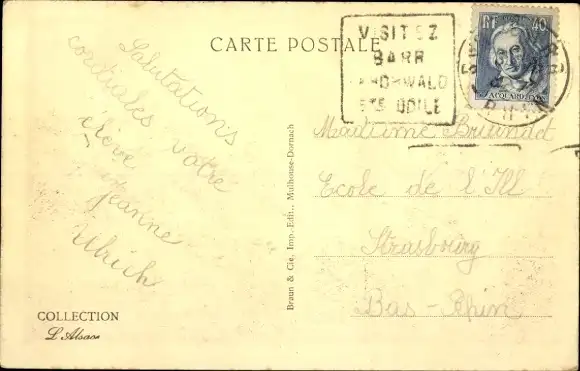 CARTE POSTALE
VISITEZ
BARR
HOHWALD
STE ODILE
RF 40
JACQUARD
Salutations
cordiales votre
élève
Jeanne
Ulrich
Madame
Ecole de l'Ill
Strasbourg
Bas-Rhin
Braun & Cie, Imp.-Edit., Mulhouse-Dornach
COLLECTION
L'Alsace